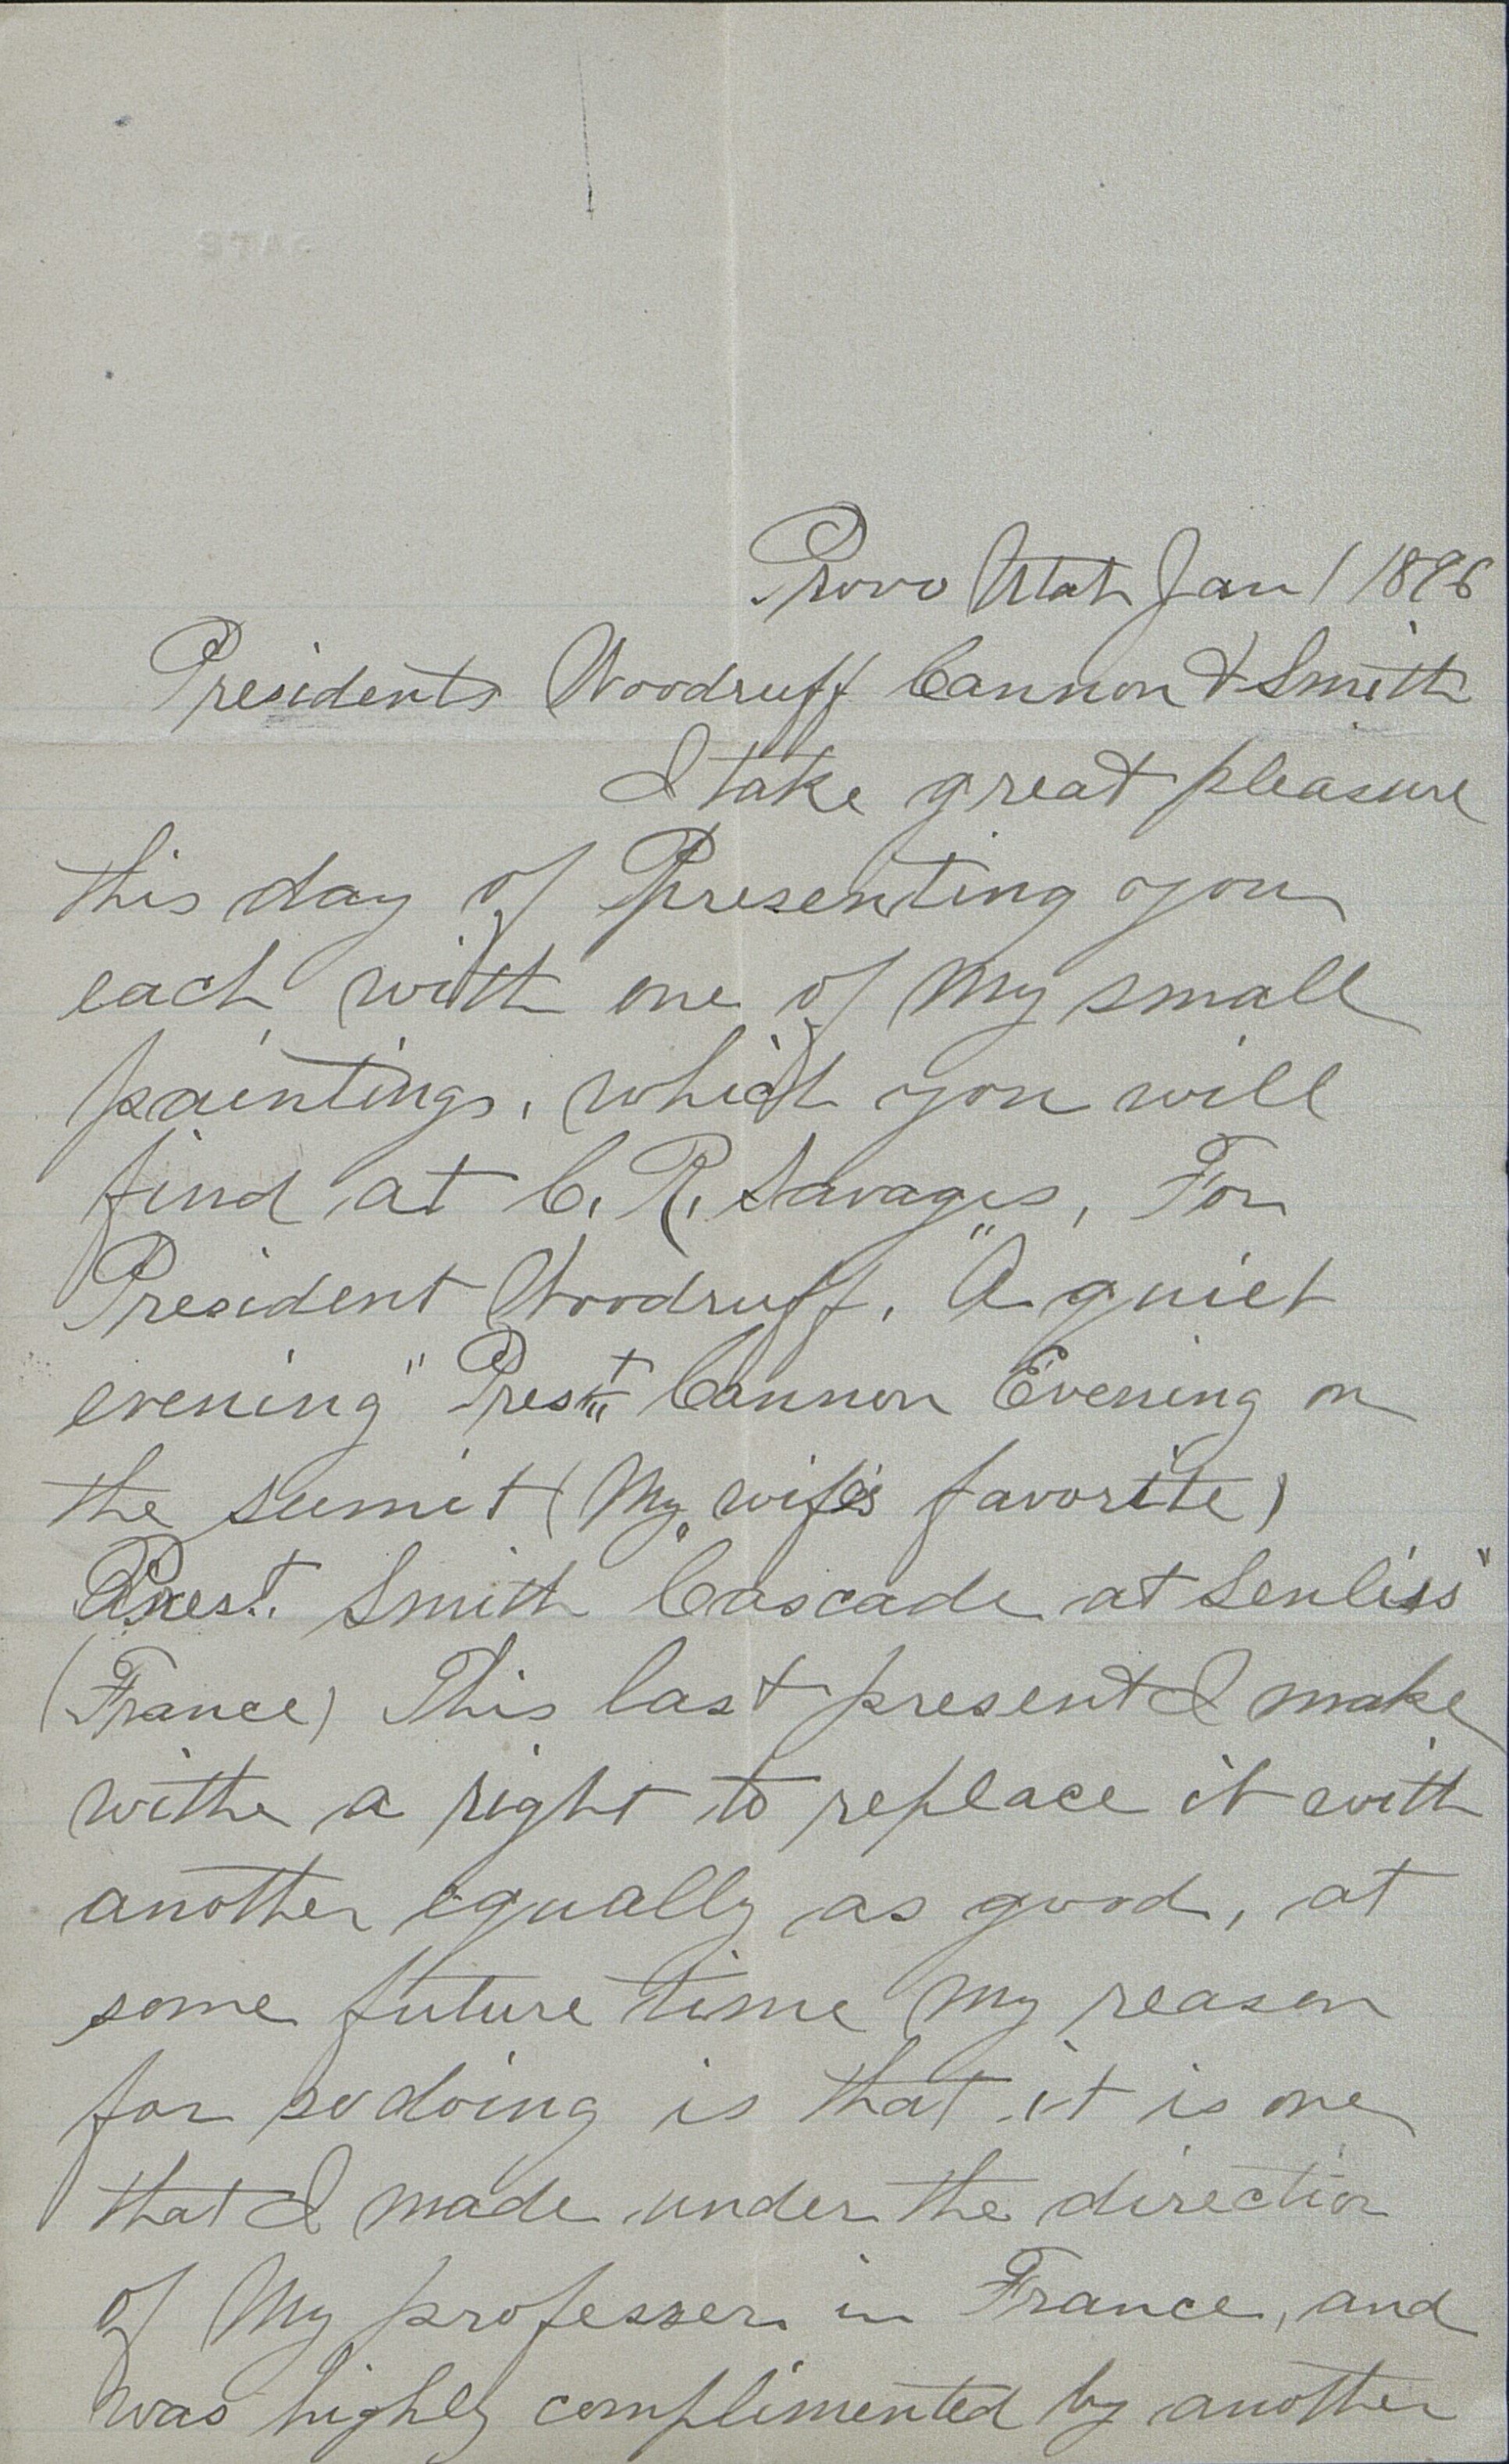 Provo Utah Jan 1 1896
Presidents Woodruff Cannon & Smith
I take great pleasure
this day of Presenting you
each with one of My small
paintings, which you will
find at C. R. Savages, For
President Woodruff, "A quiet
evening" Prest Cannon Evening on
the sumit (My wife's favorite)
Prest. Smith "Cascade at Senliss"
(France) This last present I make
withe a right to replace it with
another equally as good, at
some future time My reason
for so doing is that it is one
that I made under the direction
of My professer in France, and
was highly complimented by another